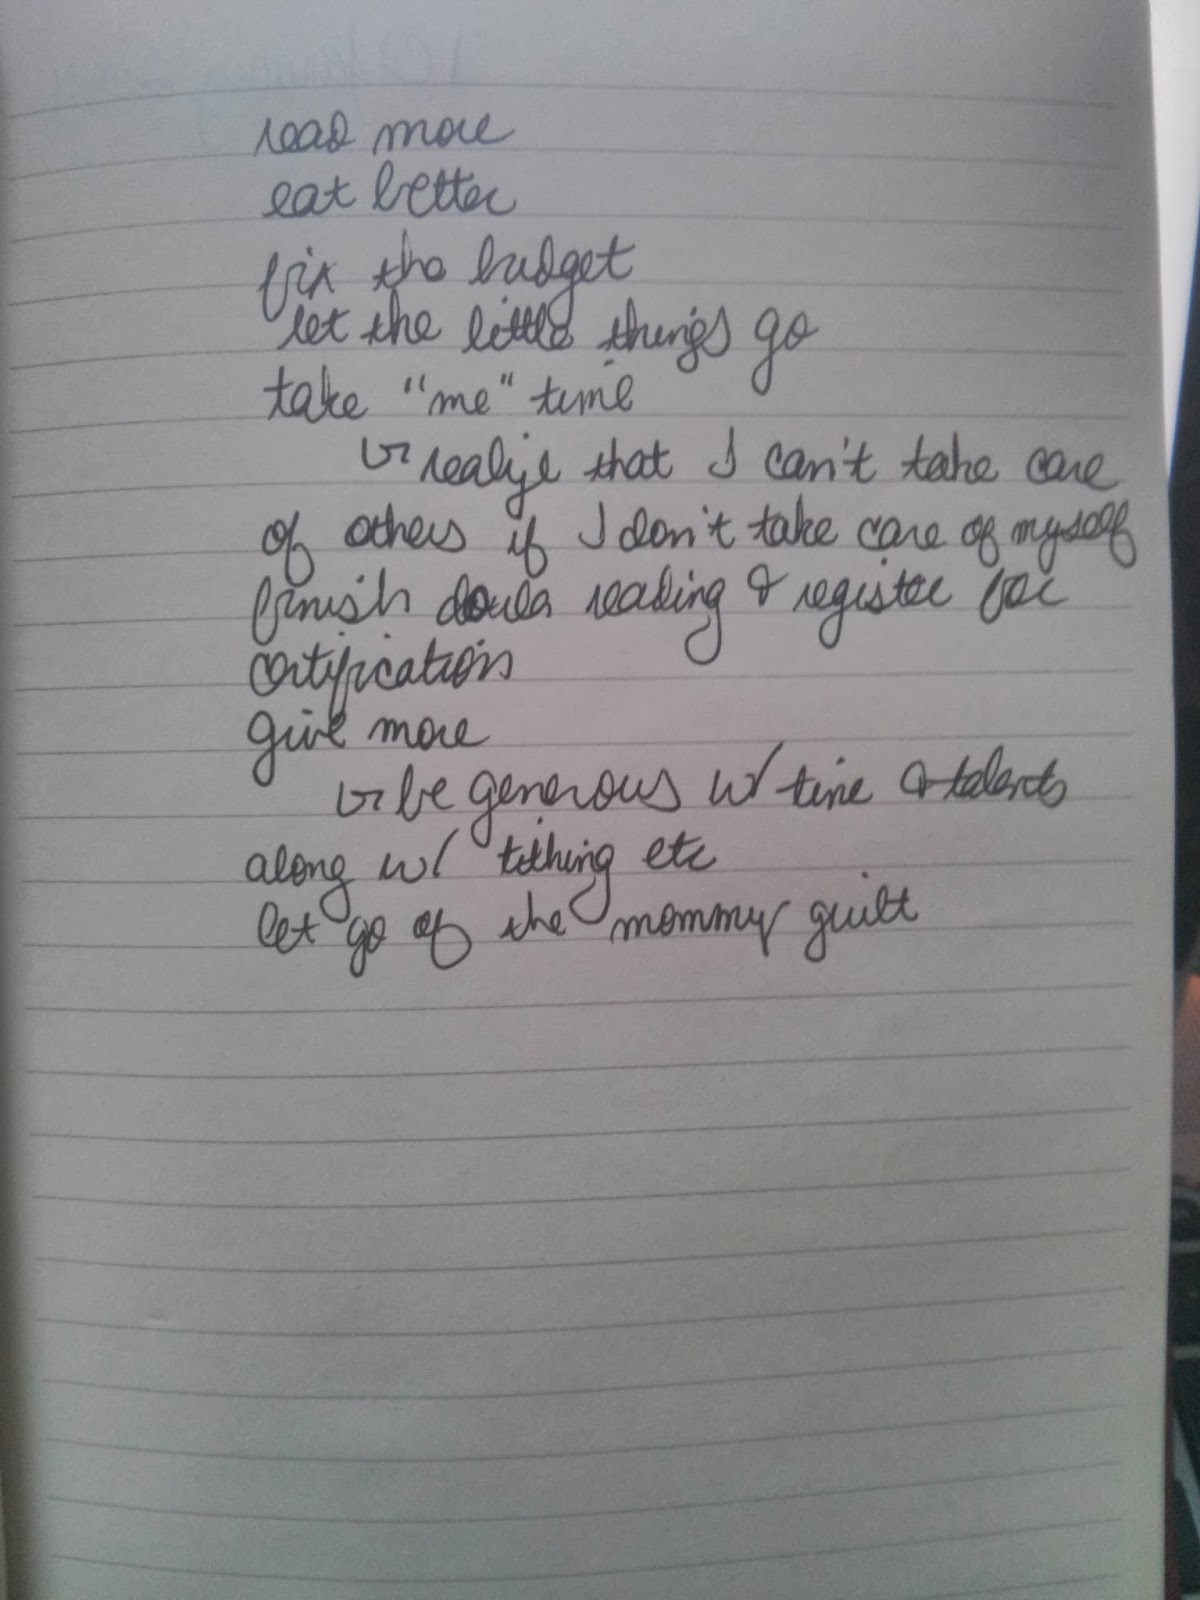 read more
eat better
fix the budget
let the little things go
take "me" time
↳ realize that I can't take care
of others if I don't take care of myself
finish doula reading & register for
certification
give more
↳ be generous w/ time & talents
along w/ tithing etc
let go of the mommy guilt